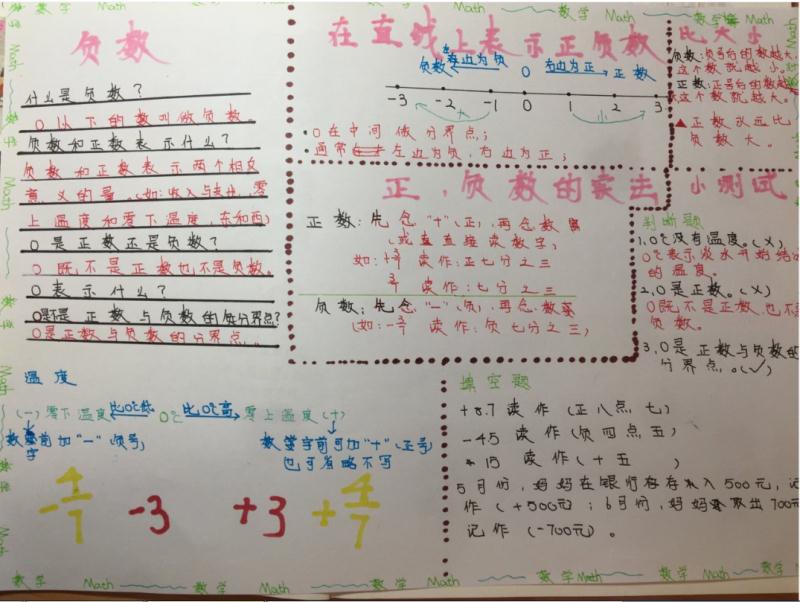 数学 Math 数学 Math 数学 Math 数学
负数
什么是负数？
0以下的数叫做负数。
负数和正数表示什么？
负数和正数表示两个相反
意义的量。(如：收入与支出，零
上温度和零下温度，东和西)
0是正数还是负数？
0既不是正数也不是负数。
0表示什么？
0是不是正数与负数的分界点？
0是正数与负数的分界点。
在直线上表示正负数
负数 左边为负 0 右边为正 正数
-3 -2 -1 0 1 2 3
大 小
0在中间做分界点；
通常左边为负，右边为正；
比大小
负数：负号后的数越大，
这个数就越小。
正数：正号后的数越大
这个数就越大。
▲正数永远比
负数大。
正、负数的读法
正数：先念"+"(正)，再念数
(或直接读数字)
如：+3/7 读作：正七分之三
3/7 读作：七分之三
负数：先念"-"(负)，再念数
(如：-3/7 读作：负七分之三)
小测试
判断题
1.0℃没有温度。(×)
0℃表示淡水开始结冰
的温度。
2.0是正数。(×)
0既不是正数也不是
负数。
3.0是正数与负数的
分界点。(√)
温度
(-)零下温度 比0℃低 0℃ 比0℃高 零上温度(+)
数字前加"-"(负号)
数字前可加"+"(正号)
也可省略不写
-4/7 -3 +3 +4/7
填空题
+8.7 读作(正八点七)
-4.5 读作(负四点五)
15 读作(十五)
5月份，妈妈在银行存存入500元，记
作(+500元)；6月份，妈妈取出700元
记作(-700元)。
数学 Math 数学 Math 数学 Math 数学 Math